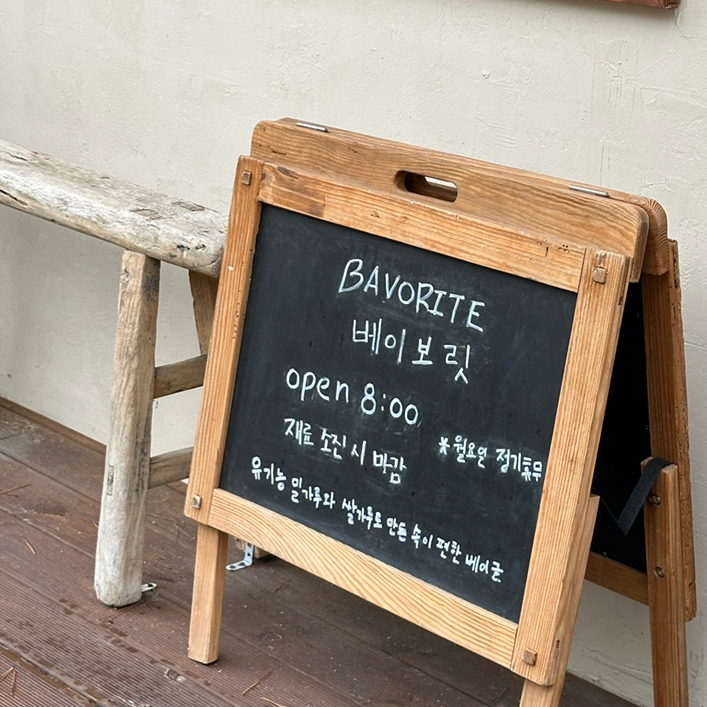 BAVORITE
베이보릿
open 8:00
재료 소진 시 마감
* 월요일 정기휴무
유기농 밀가루와 쌀가루로 만든 속이 편한 베이글